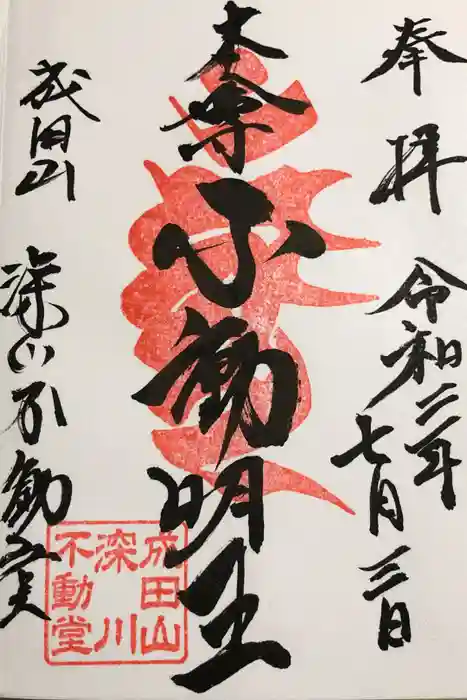 奉拝
令和二年
七月三日
本尊不動明王
成田山
深川不動堂
成田山
深川
不動堂